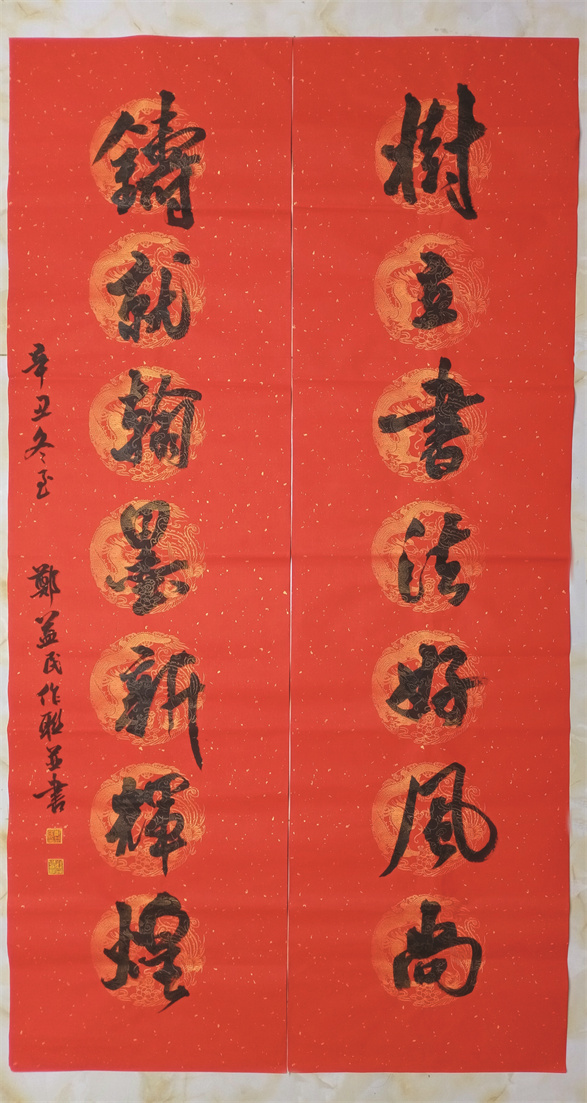 樹立書法好風尚
鑄就翰墨新輝煌
辛丑冬至
鄭益民作聯並書